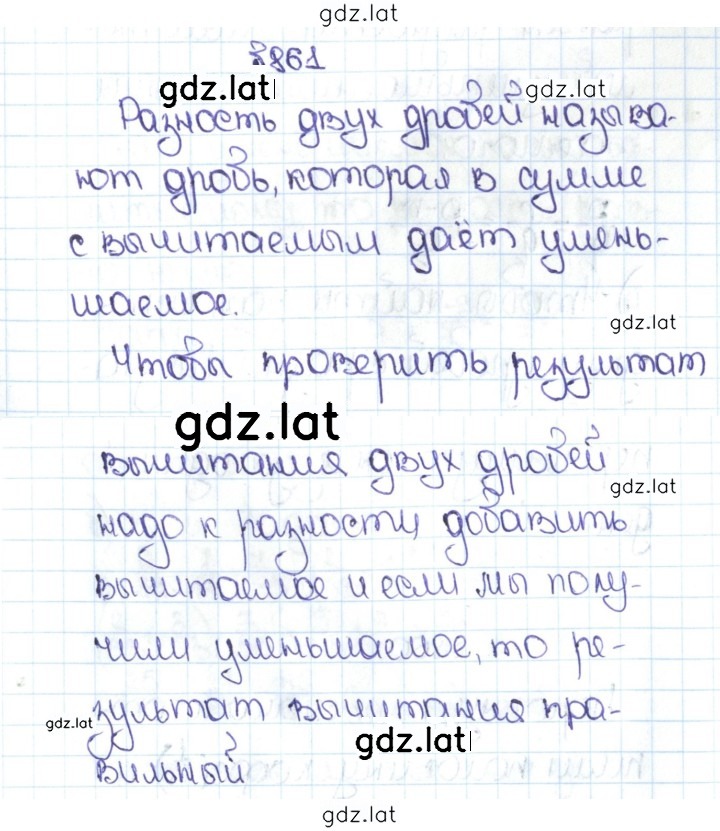 gdz.lat
№861
gdz.lat gdz.lat
Разность двух дробей называ-
ют дробь, которая в сумме
с вычитаемым даёт умень-
шаемое.
gdz.lat
Чтобы проверить результат
gdz.lat
вычитания двух дробей
gdz.lat
надо к разности добавить
вычитаемое и если мы полу-
чили уменьшаемое, то ре-
gdz.lat зультат вычитания пра-
gdz.lat
вильный
gdz.lat